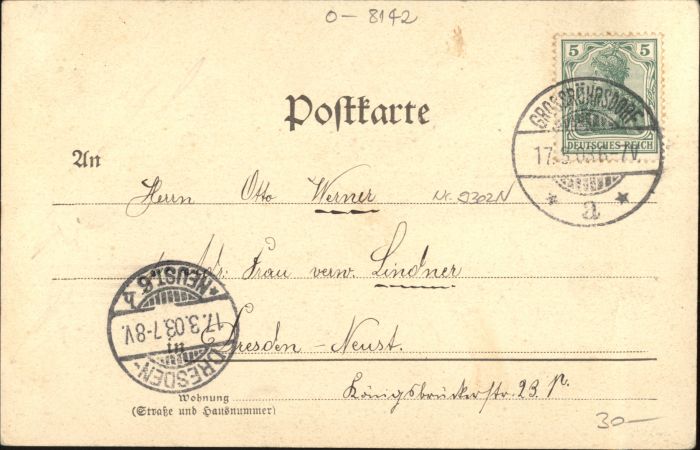 0-8142
5 5
DEUTSCHES REICH
GROSSRÖHRSDORF
17.3.03
a
Postkarte
An
Herrn Otto Werner
Nr. 9302N
Adr. Frau verw. Lindner
DRESDEN-
NEUST. 6
17.3.03.7-8V.
Dresden-Neust.
Königsbrückerstr. 23
Wohnung
(Straße und Hausnummer)
30-